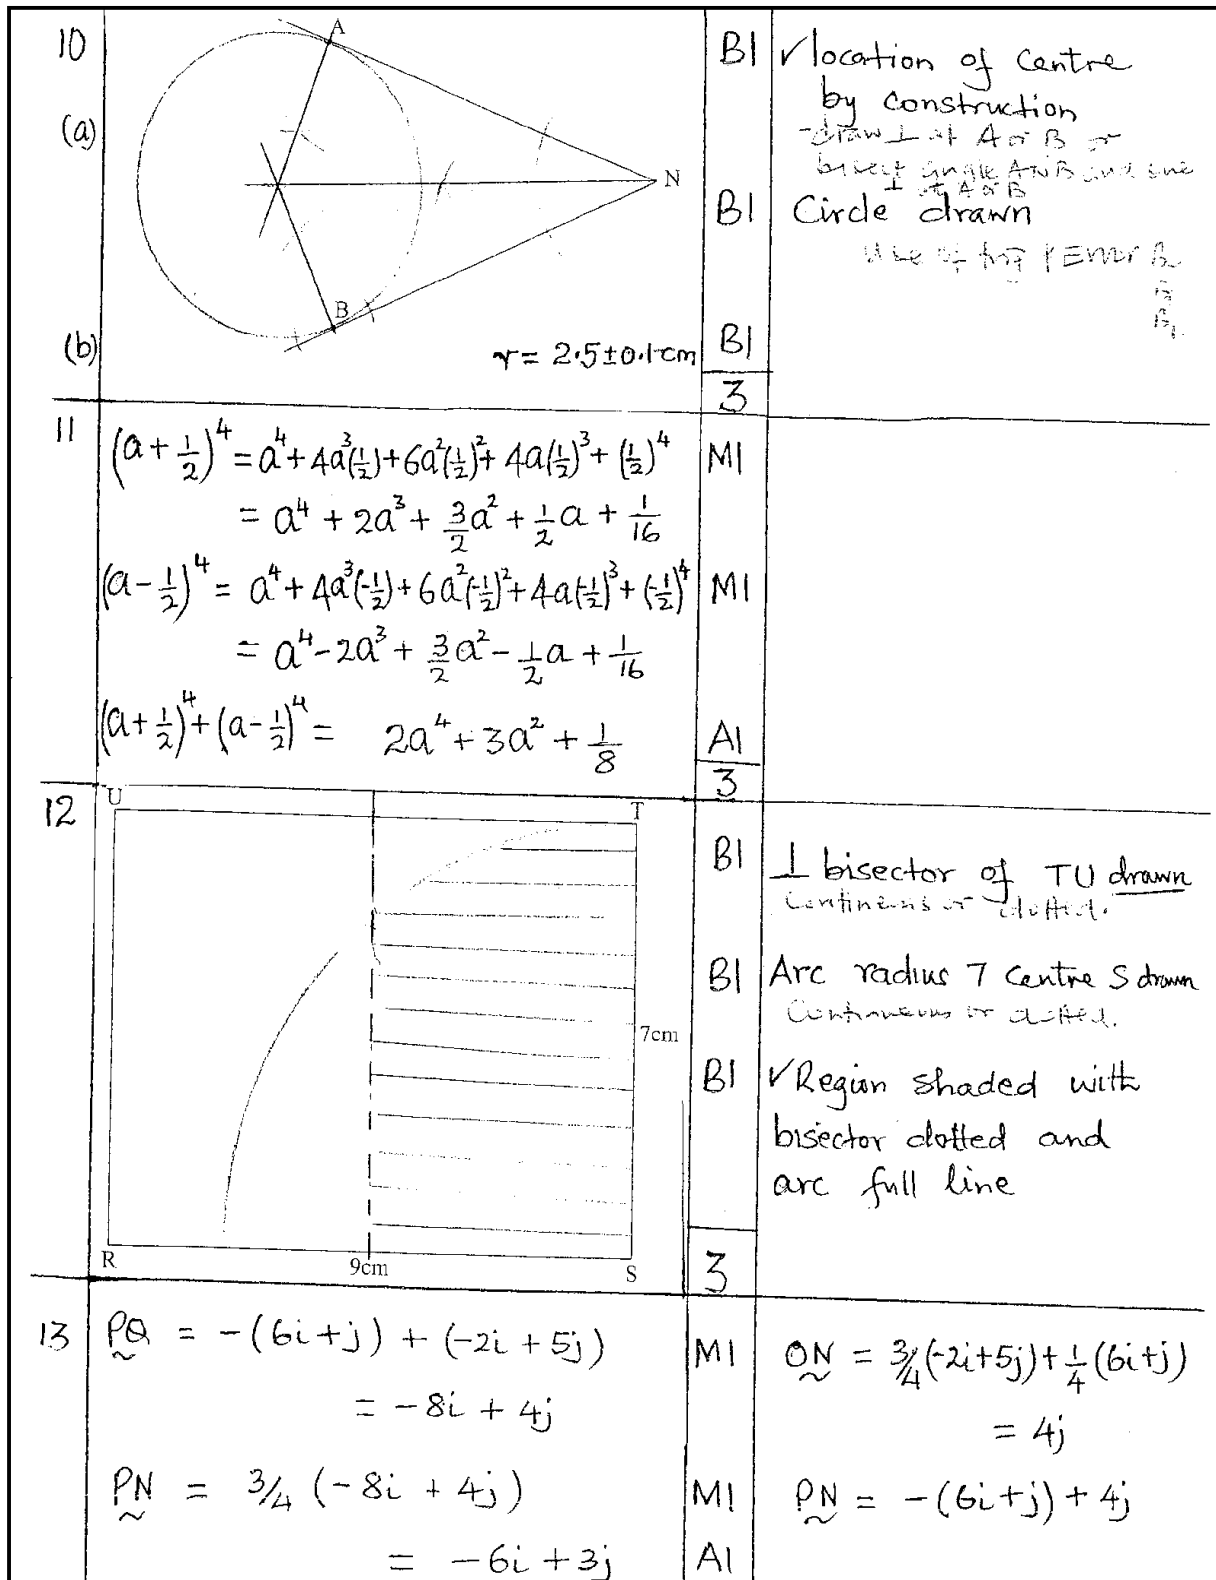 10
(a)
A
N
B
(b)
r = 2.5±0.1cm
B1
✓location of centre
by construction
-draw ⊥ at A or B or
bisect angle ANB and one
⊥ at A or B
B1
Circle drawn
Use of
B1
3
11
(a + 1/2)^4 = a^4 + 4a^3(1/2) + 6a^2(1/2)^2 + 4a(1/2)^3 + (1/2)^4
M1
= a^4 + 2a^3 + 3/2 a^2 + 1/2 a + 1/16
(a - 1/2)^4 = a^4 + 4a^3(-1/2) + 6a^2(-1/2)^2 + 4a(-1/2)^3 + (-1/2)^4
M1
= a^4 - 2a^3 + 3/2 a^2 - 1/2 a + 1/16
(a + 1/2)^4 + (a - 1/2)^4 = 2a^4 + 3a^2 + 1/8
A1
3
12
U
T
7cm
R
9cm
S
B1
⊥ bisector of TU drawn
Continuous or dotted.
B1
Arc radius 7 centre S drawn
Continuous or dotted.
B1
✓Region shaded with
bisector dotted and
arc full line
3
13
PQ = -(6i+j) + (-2i + 5j)
M1
ON = 3/4(-2i+5j) + 1/4(6i+j)
= -8i + 4j
= 4j
PN = 3/4 (-8i + 4j)
M1
PN = -(6i+j) + 4j
= -6i + 3j
A1